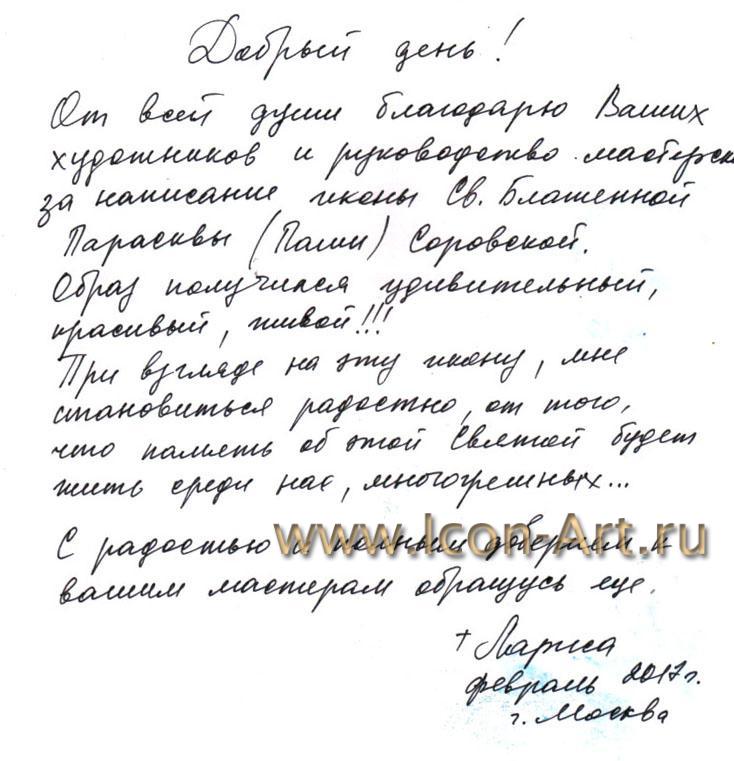 Добрый день!
От всей души благодарю Ваших
художников и руководство мастерск
за написание иконы Св. Блаженной
Парасквы (Паши) Соровской.
Образ получился удивительный,
красивый, живой!!!
При взгляде на эту икону, мне
становиться радостно, от того,
что память об этой Святой будет
жить среди нас, многогрешных...
www.Icon-Art.ru
С радостью и полным доверием к
вашим мастерам обращусь еще.
† Лариса
февраль 2017 г.
г. Москва